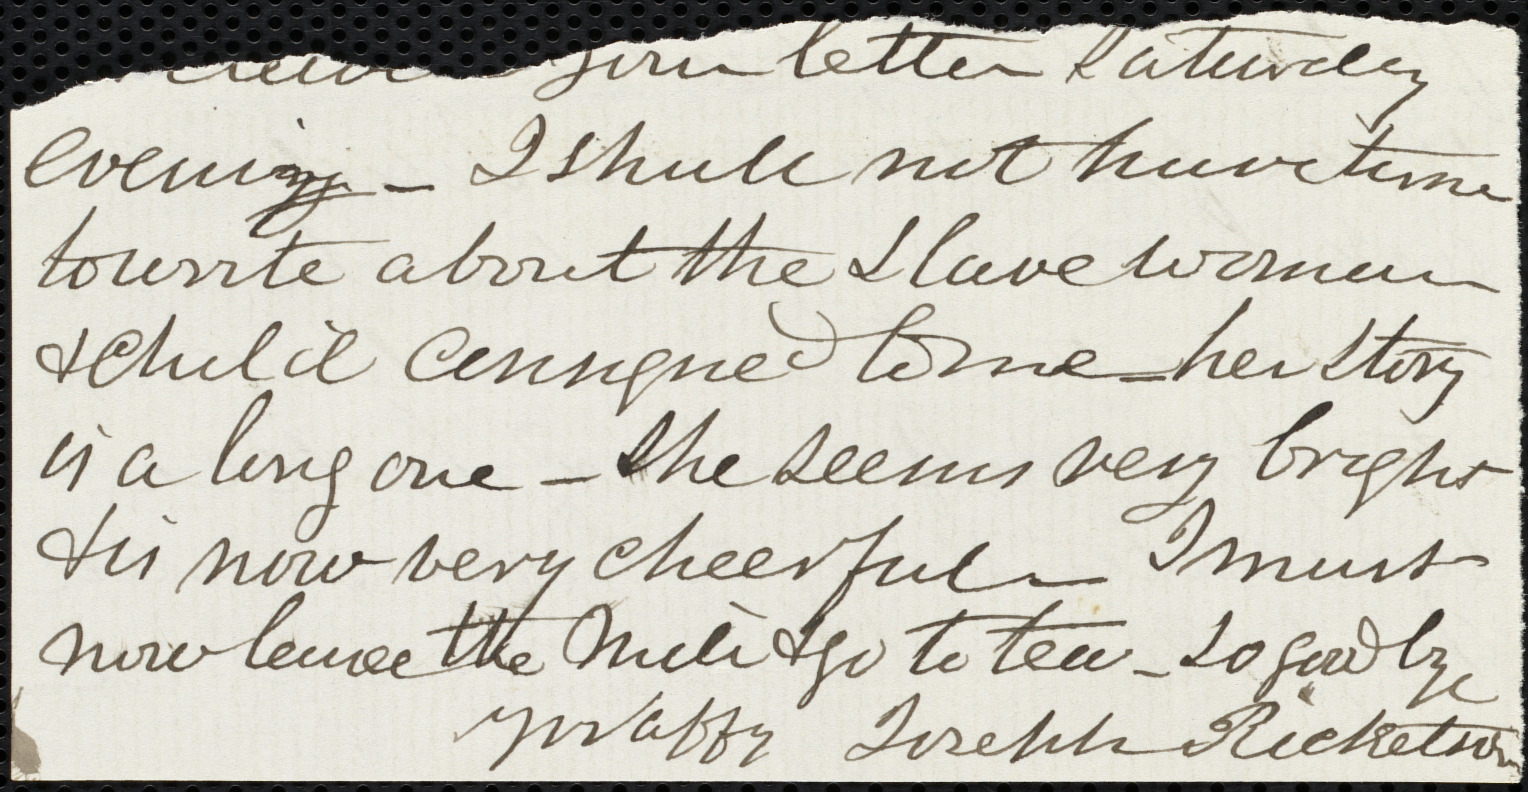 your letter Saturday
evening - I shall not have time
to write about the Slave woman
& child consigned to me - her story
is a long one - She seems very bright
& is now very cheerful - I must
now leave the Mill & go to tea - so good bye
yrs affy Joseph Ricketson